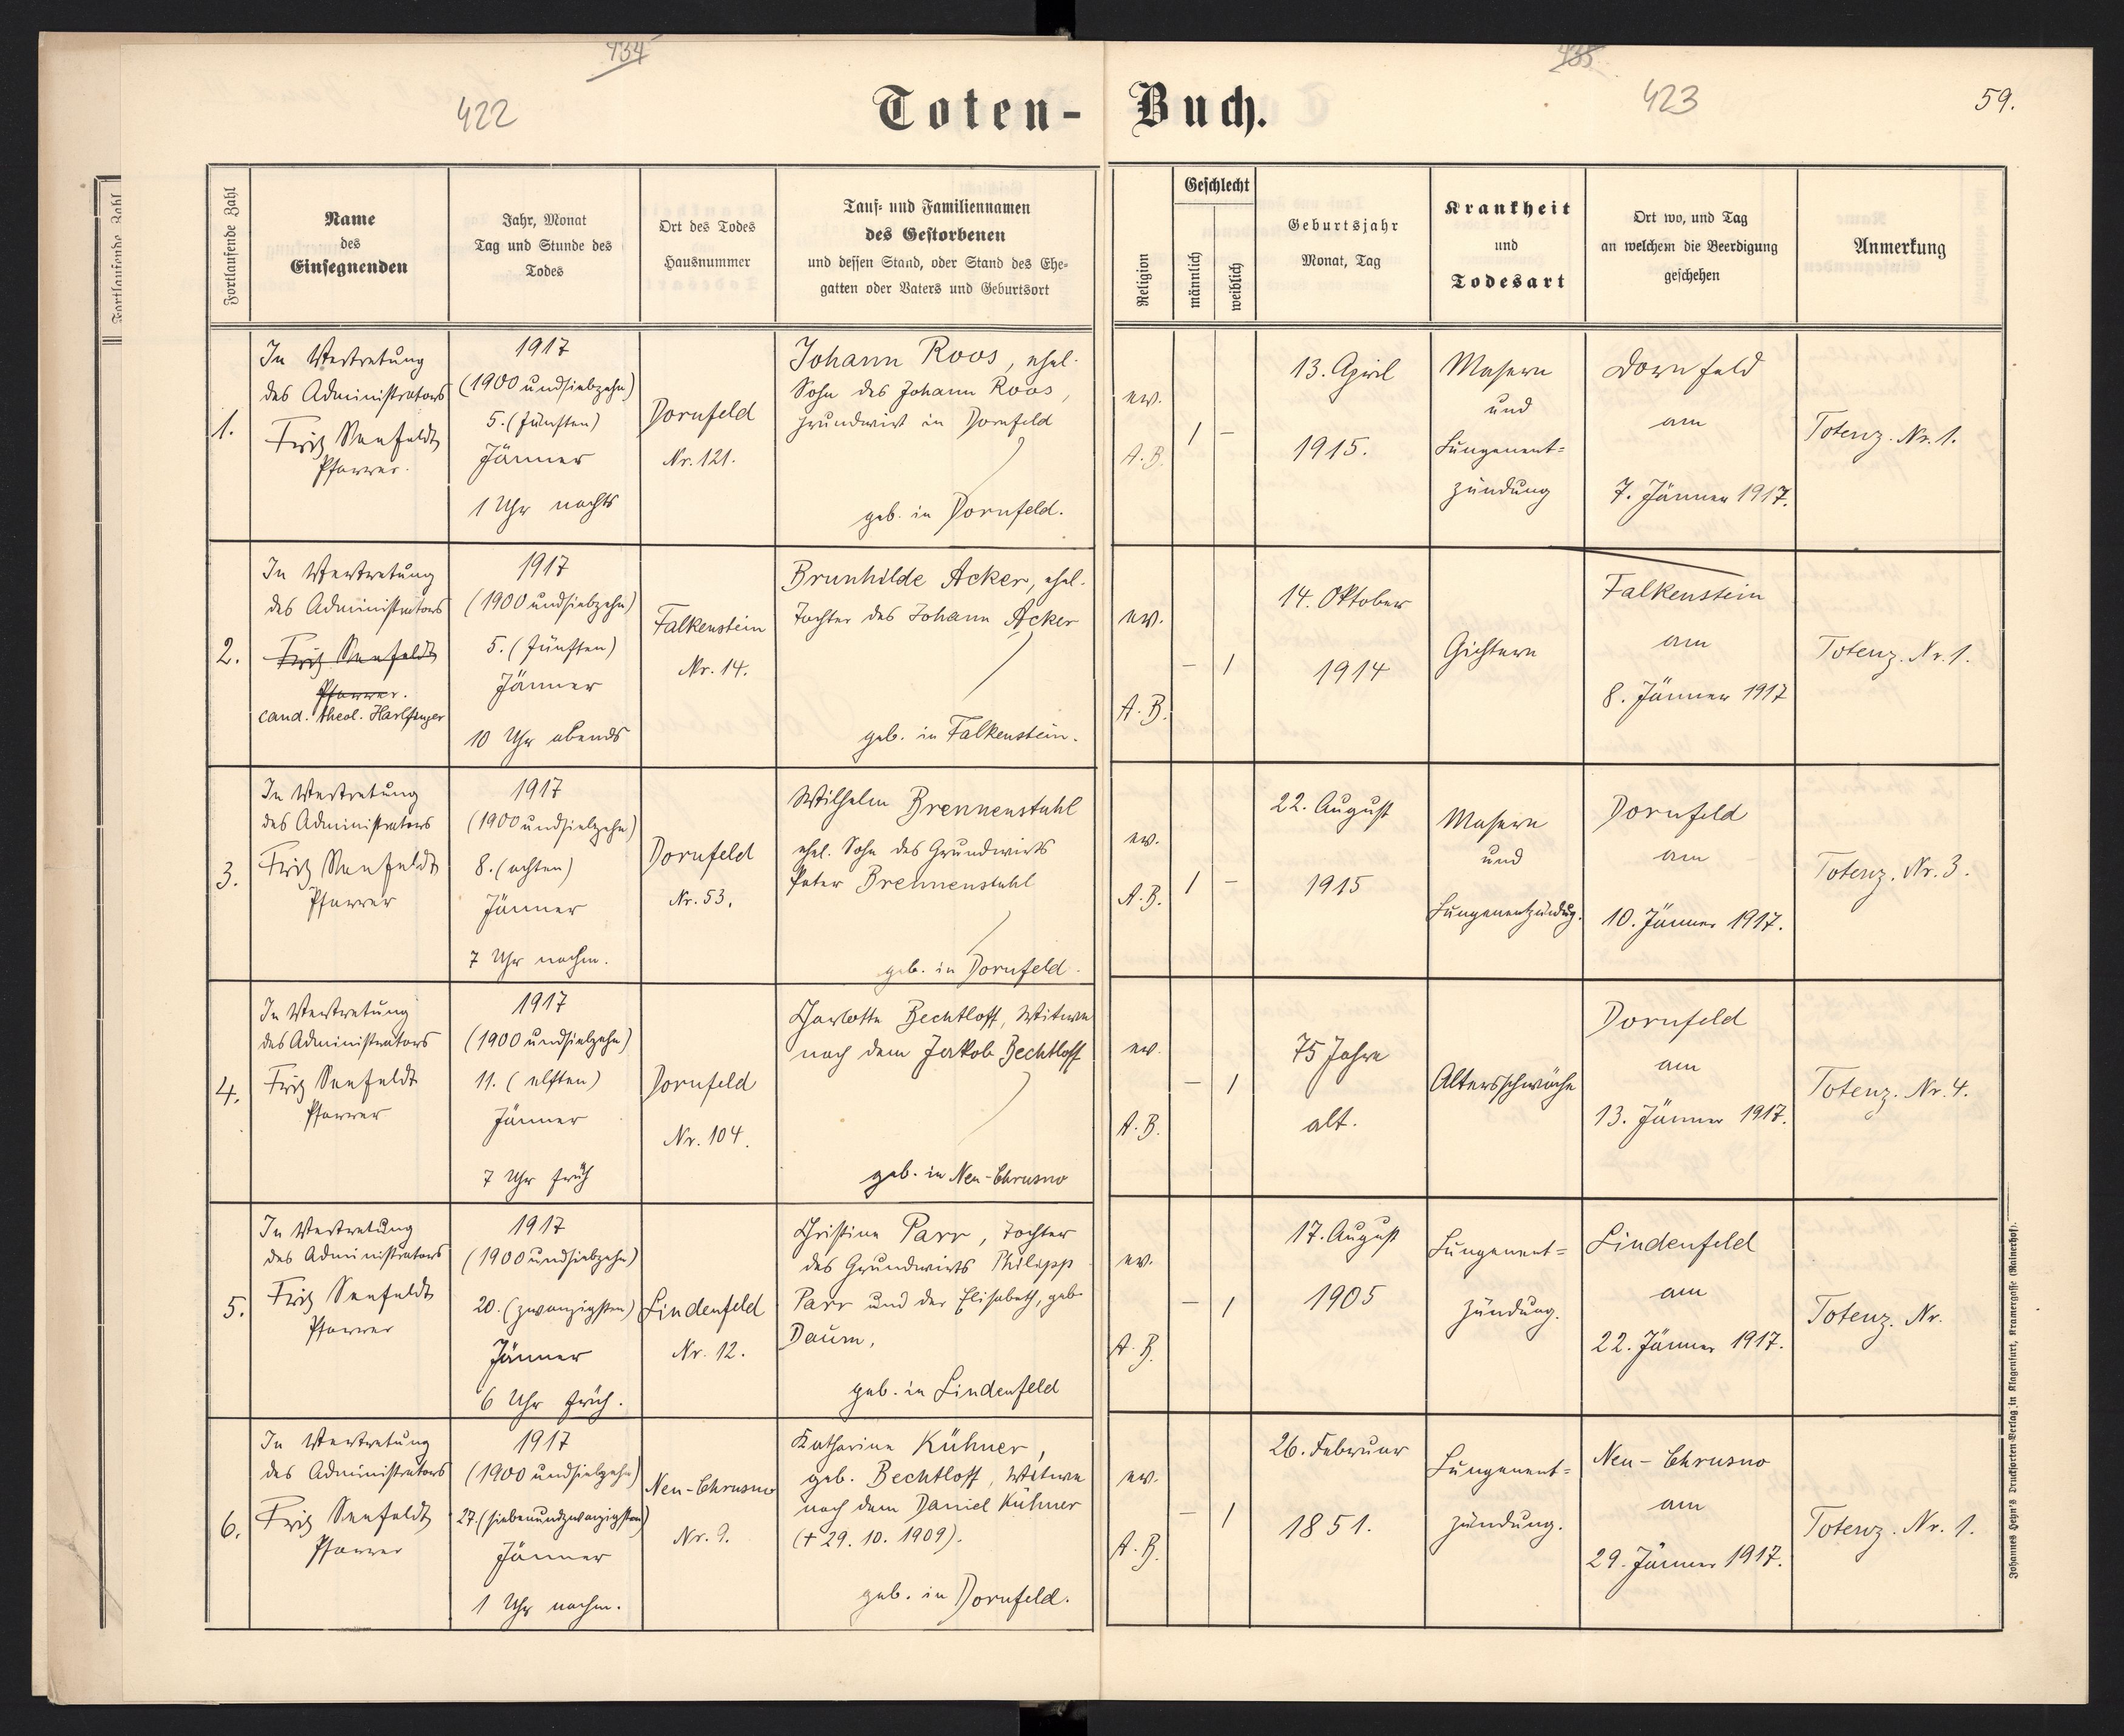 434
435
422
Toten-
Buch.
423
59.
Fortlaufende Zahl
Fortlaufende Zahl
Name
des
Einsegnenden
Jahr, Monat
Tag und Stunde des
Todes
Ort des Todes
Hausnummer
Tauf- und Familiennamen
des Gestorbenen
und dessen Stand, oder Stand des Ehe-
gatten oder Vaters und Geburtsort
Religion
Geschlecht
männlich
weiblich
Geburtsjahr
Monat, Tag
Krankheit
und
Todesart
Ort wo, und Tag
an welchem die Beerdigung
geschehen
Anmerkung
1.
In Vertretung
des Administrators
Fritz Seefeldt
Pfarrer.
1917
(1900 undsiebzehn)
5. (fünften)
Jänner
1 Uhr nachts
Dornfeld
Nr. 121.
Johann Roos, ehel.
Sohn des Johann Roos,
Grundwirt in Dornfeld
geb. in Dornfeld.
ev.
A. B.
1 –
13. April
1915.
Masern
und
Lungenent=
zündung
Dornfeld
am
7. Jänner 1917.
Totenz. Nr. 1.
2.
In Vertretung
des Administrators
Fritz Seefeldt
Pfarrer.
cand. theol. Harlfinger
1917
(1900 undsiebzehn)
5. (fünften)
Jänner
10 Uhr abends
Falkenstein
Nr. 14.
Brunhilde Acker, ehel.
Tochter des Johann Acker
geb. in Falkenstein.
ev.
A. B.
– 1
14. Oktober
1914
Gichtern
Falkenstein
am
8. Jänner 1917
Totenz. Nr. 1.
3.
In Vertretung
des Administrators
Fritz Seefeldt
Pfarrer
1917
(1900 undsiebzehn)
8. (achten)
Jänner
7 Uhr nachm.
Dornfeld
Nr. 53.
Wilhelm Brennenstuhl
ehel. Sohn des Grundwirts
Peter Brennenstuhl
geb. in Dornfeld.
ev.
A. B.
1 –
22. August
1915
Masern
und
Lungenentzündug.
Dornfeld
am
10. Jänner 1917.
Totenz. Nr. 3.
4.
In Vertretung
des Administrators
Fritz Seefeldt
Pfarrer
1917
(1900 undsiebzehn)
11. (elften)
Jänner
7 Uhr früh
Dornfeld
Nr. 104.
Charlotte Bechtloff, Witwe
nach dem Jakob Bechtloff
geb. in Neu-Chrusno
ev.
A. B.
– 1
75 Jahre
alt.
Altersschwäche
Dornfeld
am
13. Jänner 1917.
Totenz. Nr. 4.
5.
In Vertretung
des Administrators
Fritz Seefeldt
Pfarrer
1917
(1900 undsiebzehn)
20. (zwanzigsten)
Jänner
6 Uhr früh.
Lindenfeld
Nr. 12.
Christine Parr, Tochter
des Grundwirts Philipp
Parr und der Elisabeth, geb.
Daum,
geb. in Lindenfeld
ev.
A. B.
– 1
17. August
1905
Lungenent=
zündung.
Lindenfeld
am
22. Jänner 1917.
Totenz. Nr.
6.
In Vertretung
des Administrators
Fritz Seefeldt
Pfarrer
1917
(1900 undsiebzehn)
27. (siebenundzwanzigsten)
Jänner
1 Uhr nachm.
Neu-Chrusno
Nr. 9.
Katharina Kühner,
geb. Bechtloff, Witwe
nach dem Daniel Kühner
(† 29. 10. 1909).
geb. in Dornfeld.
ev.
A. B.
– 1
26. Februar
1851.
Lungenent=
zündung.
Neu-Chrusno
am
29. Jänner 1917.
Totenz. Nr. 1.
Johannes Heyn's Drucksorten-Verlag in Klagenfurt, Kramergasse (Rainerhof).